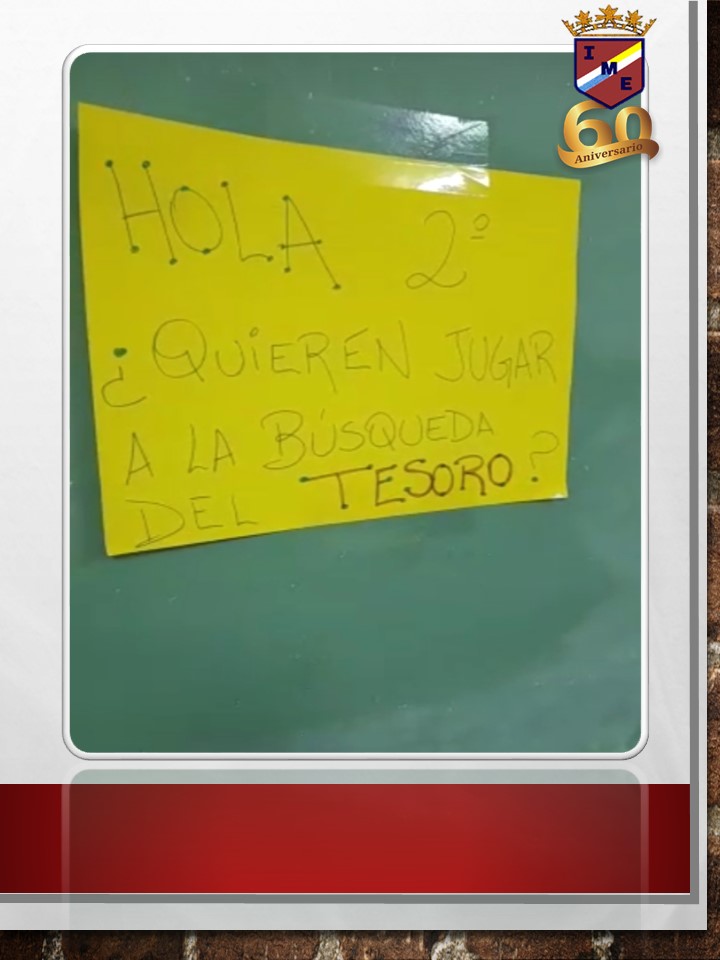 I
M
E
60
Aniversario
HOLA 2º
¿QUIEREN JUGAR
A LA BÚSQUEDA
DEL TESORO?